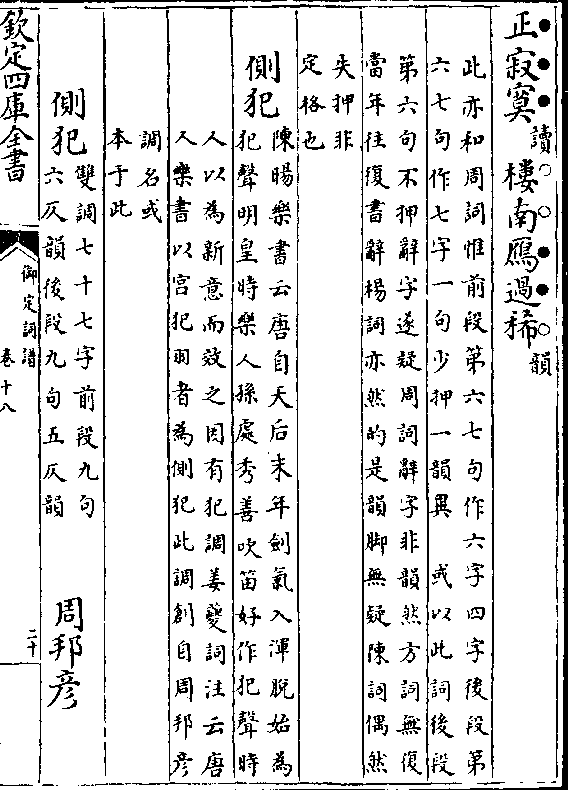 正寂寞讀樓南鴈過稀韻
此亦和周詞惟前段第六七句作六字四字後段第
六七句作七字一句少押一韻異　或以此詞後段
第六句不押辭字遂疑周詞辭字非韻然方詞無復
當年往復書辭楊詞亦然的是韻脚無疑陳詞偶然
失押非
定格也
側犯
陳暘樂書云唐自天后末年劍氣入渾脫始為
犯聲明皇時樂人孫處秀善吹笛好作犯聲時
人以為新意而效之因有犯調姜夔詞注云唐
人樂書以宮犯羽者為側犯此調創自周邦彥
調名或
本于此
側犯
雙調七十七字前段九句
六仄韻後段九句五仄韻
周邦彥
欽定四庫全書
御定詞譜
卷十八
二十